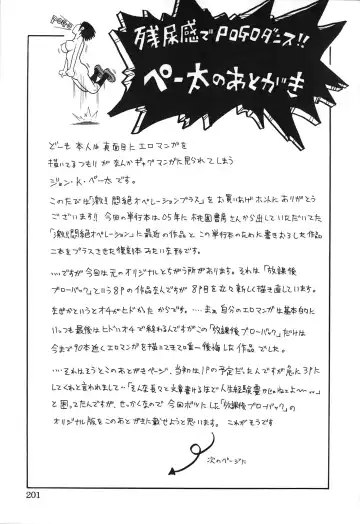 残尿感でPOGOダンス!!
ペー太のあとがき
どーも本人は真面目にエロマンガを
描いてるつもりがなんかギャグマンガに見られてしまう
ジョン・K・ペー太です。
このたびは「激!!悶絶オペレーションプラス」をお買いあげホントにありがとう
ございます!! 今回の単行本は05年に桃園書房さんから出していただいてた
「激!!悶絶オペレーション」に最近の作品とこの単行本のために書きおろした作品
二本をプラスさせた復刻本みたいな形です。
…ですが今回は元のオリジナルとちがう所があります。それは「放課後
ブローバック」という8Pの作品なんですが8P目を立々新しく描き直しています。
なぜかというとオチがヒドかったからです。……まぁ自分のエロマンガは基本的に
いっつも最後はヒドいオチで終わるんですがこの「放課後ブローバック」だけは
今まで90本近くエロマンガを描いてきて唯一後悔した作品でした。
……それはそうとこのあとがきページ、当初は1Pの予定だったんですが急に3Pに
してくれと言われまして…「そんな長々と文章書けるほど人生経験豊かじゃねェよ〜…」
と困ってたんですが、せっかくなので今回ボツにした「放課後ブローバック」の
オリジナル版をこのあとがきに載せようと思います。これがそうです
次のページに
201